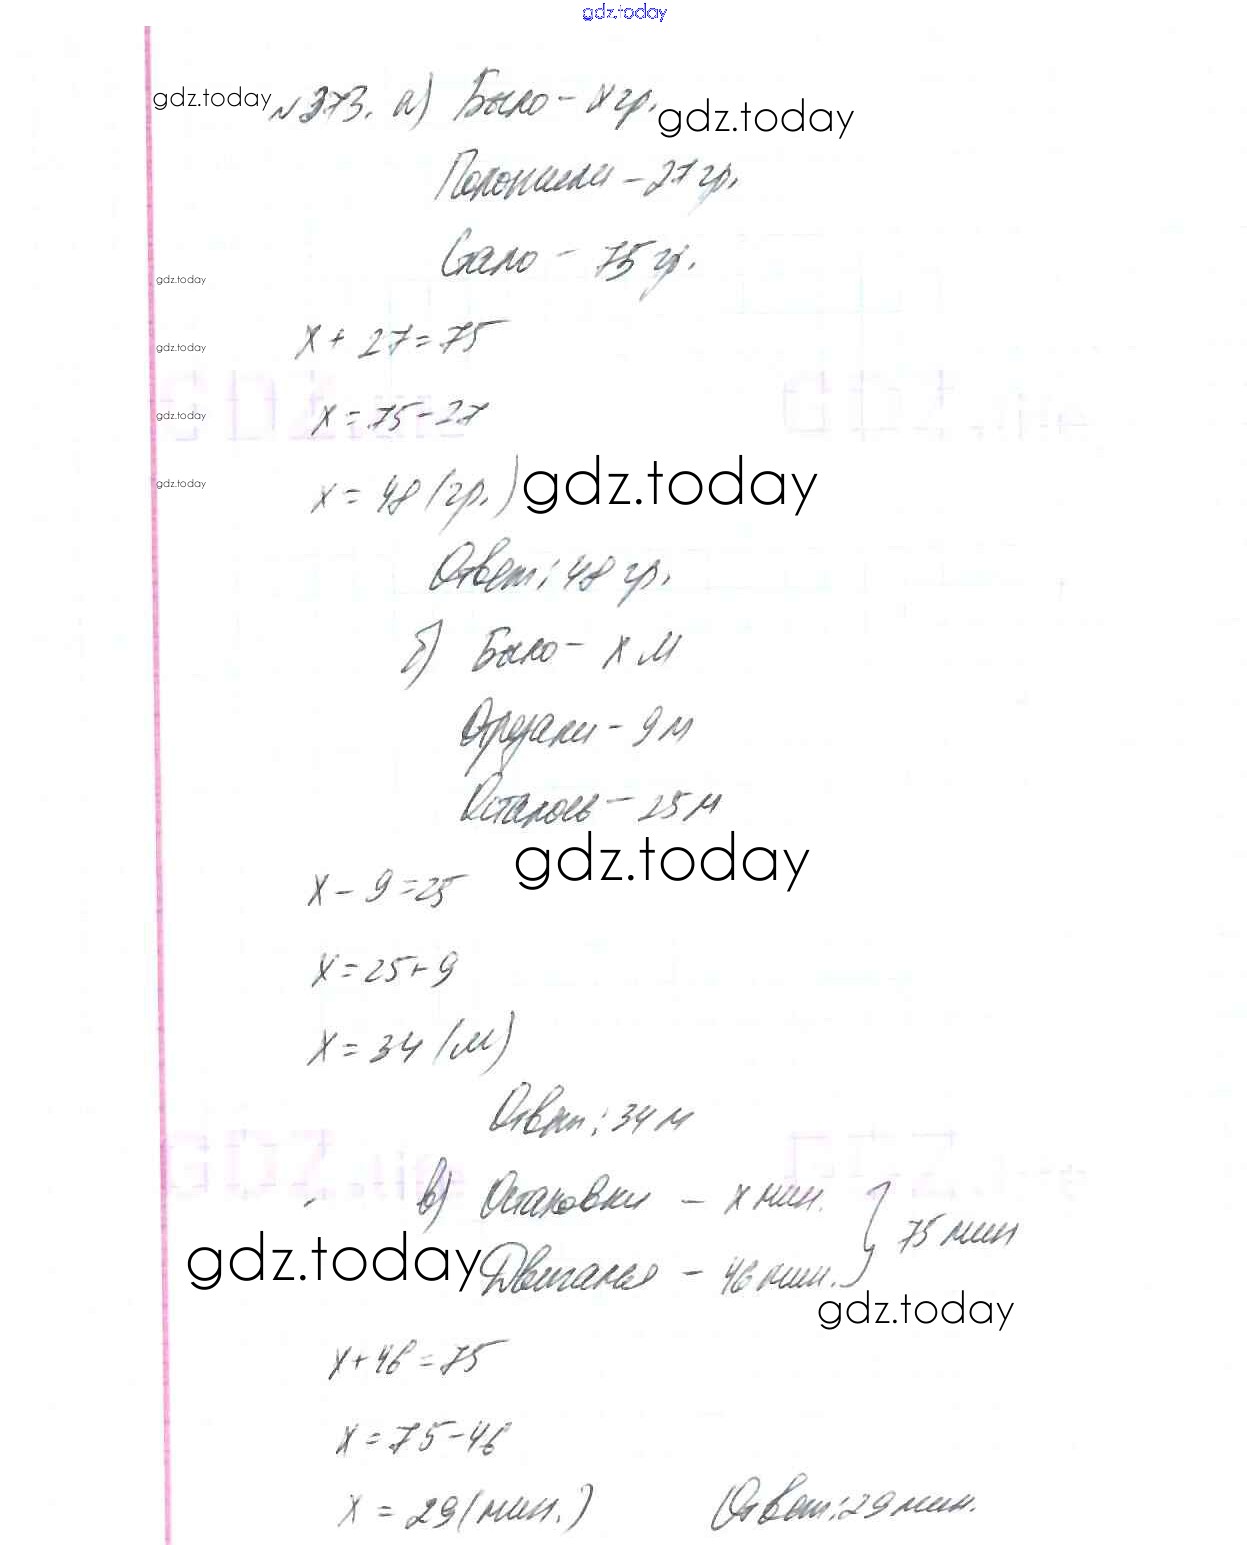 gdz.today
gdz.today №373. а) Было - х гр. gdz.today
Положили - 27 гр.
Стало - 75 гр.
gdz.today
х + 27 = 75
gdz.today
х = 75 - 27
gdz.today
х = 48 (гр.) gdz.today
gdz.today
Ответ: 48 гр.
б) Было - х м
Отрезали - 9 м
Осталось - 25 м
gdz.today
х - 9 = 25
х = 25 + 9
х = 34 (м)
Ответ: 34 м
в) Остановки - х мин. } 75 мин
gdz.today Движения - 46 мин.
gdz.today
х + 46 = 75
х = 75 - 46
х = 29 (мин.) Ответ: 29 мин.